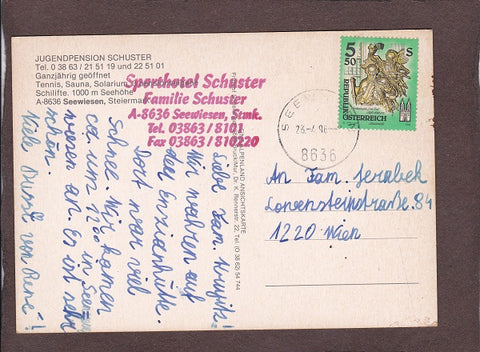 JUGENDPENSION SCHUSTER
Tel. 0 38 63 / 21 51 19 und 22 51 01
Ganzjährig geöffnet
Tennis, Sauna, Solarium
Schilifte. 1000 m Seehöhe
A-8636 Seewiesen, Steiermark
Sporthotel Schuster
Familie Schuster
A-8636 Seewiesen, Stmk.
Tel. 03863/8101
Fax 03863/810220
Liebe Fam.
Wir waren auf
der Enzianhütte.
Dort war viel
Schnee. Wir kamen
ca. um 12 in See=
wiesen an. Es ist sehr
schön.
Viele Grüße von René!
ALPENLAND ANSICHTSKARTE
Dr. K. Rennerstr. 22, Tel. (0 38 62) 54 744
5 50 S
REPUBLIK
ÖSTERREICH
8636
An Fam. Jerabek
Lonsensteinstraße 84
1220 Wien